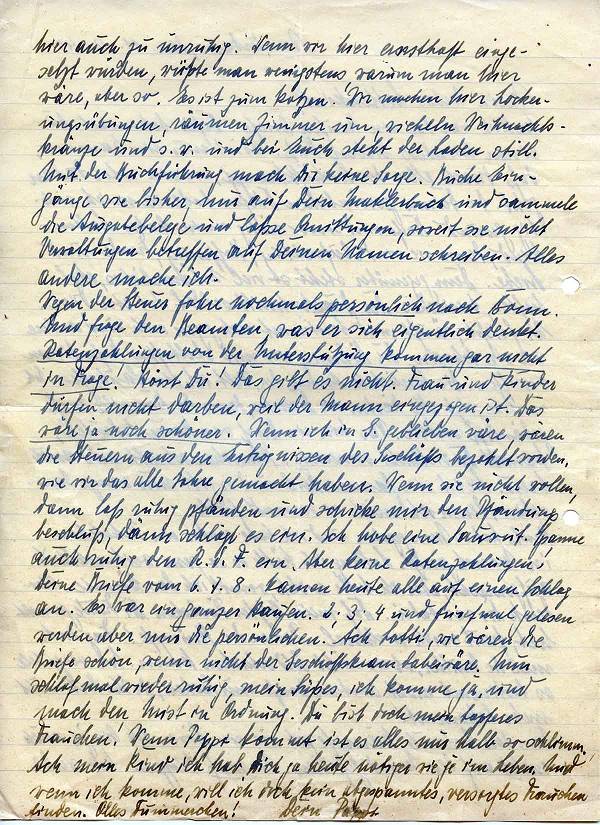 hier auch zu unruhig. Wenn wir hier ernsthaft einge-
setzt würden, wüßte man wenigstens warum man hier
wäre, aber so. Es ist zum kotzen. Wir machen hier Locker-
ungsübungen, räumen Zimmer um, wickeln Weihnachts-
kränze und s. w. und bei Euch steht der Laden still.
Mit der Buchführung mach Dir keine Sorge. Buche Ein-
gänge wie bisher, nur auf Dein Maklerbuch und sammele
die Ausgabebelege und lasse Quittungen, soweit sie nicht
Verwaltungen betreffen auf Deinen Namen schreiben. Alles
andere mache ich.
Wegen der Steuer fahre nochmals persönlich nach
Und frage den Beamten, was er sich eigentlich denkt.
Ratenzahlungen von der Unterstützung kommen gar nicht
in Frage! Hörst Du! Das gibt es nicht. Frau und Kinder
dürfen nicht darben, weil der Mann eingezogen ist. Das
wäre ja noch schöner. Wenn ich in S. geblieben wäre, wären
die Steuern aus den Erträgnissen des Geschäfts bezahlt worden,
wie wir das alle Jahre gemacht haben. Wenn sie nicht wollen,
dann laß ruhig pfänden und schicke mir den Pfändungs
beschluß, dann schlägt es ein. Ich habe eine Sauwut. Spanne
auch ruhig den ein. Aber keine Ratenzahlungen!
Deine Briefe vom 6. 7. 8. kamen heute alle auf einen Schlag
an. Es war ein ganzer Haufen. 2 - 3 - 4 und fünfmal gelesen
werden aber nur die persönlichen. Ach, wie wären die
Briefe schön, wenn nicht der Geschäftskram dabei wäre. Nun
schlaf mal wieder ruhig mein Süßes, ich komme ja und
mach den Mist in Ordnung. Du bist doch mein tapferes
Frauchen. Wenn Pappi kommt ist es alles nur halb so schlimm.
Ach mein Kind ich hab Dich ja heute nötiger wie je im Leben. Und
wenn ich komme, will ich doch kein abgespanntes, versorgtes Frauchen
finden. Altes Dummerchen! Dein